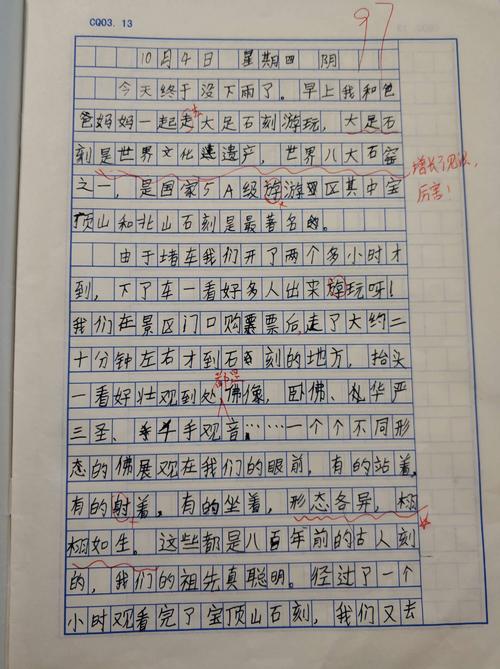 CQ03.13
97
10月4日 星期四 阴
今天终于没下雨了。早上我和爸
爸妈妈一起走去大足石刻游玩，大足石
刻是世界文化遗遗产，世界八大石窟
之一，是国家5A级游游区其中宝
顶山和北山石刻是最著名的。
增长了见识，
厉害！
由于堵车我们开了两个多小时才
到，下了车一看好多人出来游玩呀！
我们在景区门口购票后，走了大约二
十分钟左右才到石刻的地方，抬头
一看好壮观到处都是佛像，卧佛、华严
三圣、千手观音……一个个不同形
态的佛展观在我们的眼前，有的站着
有的射着，有的坐着，形态各异，栩
栩如生。这些都是八百年前的古人刻
的，我们的祖先真聪明。经过了一个
小时观看完了宝顶山石刻，我们又去